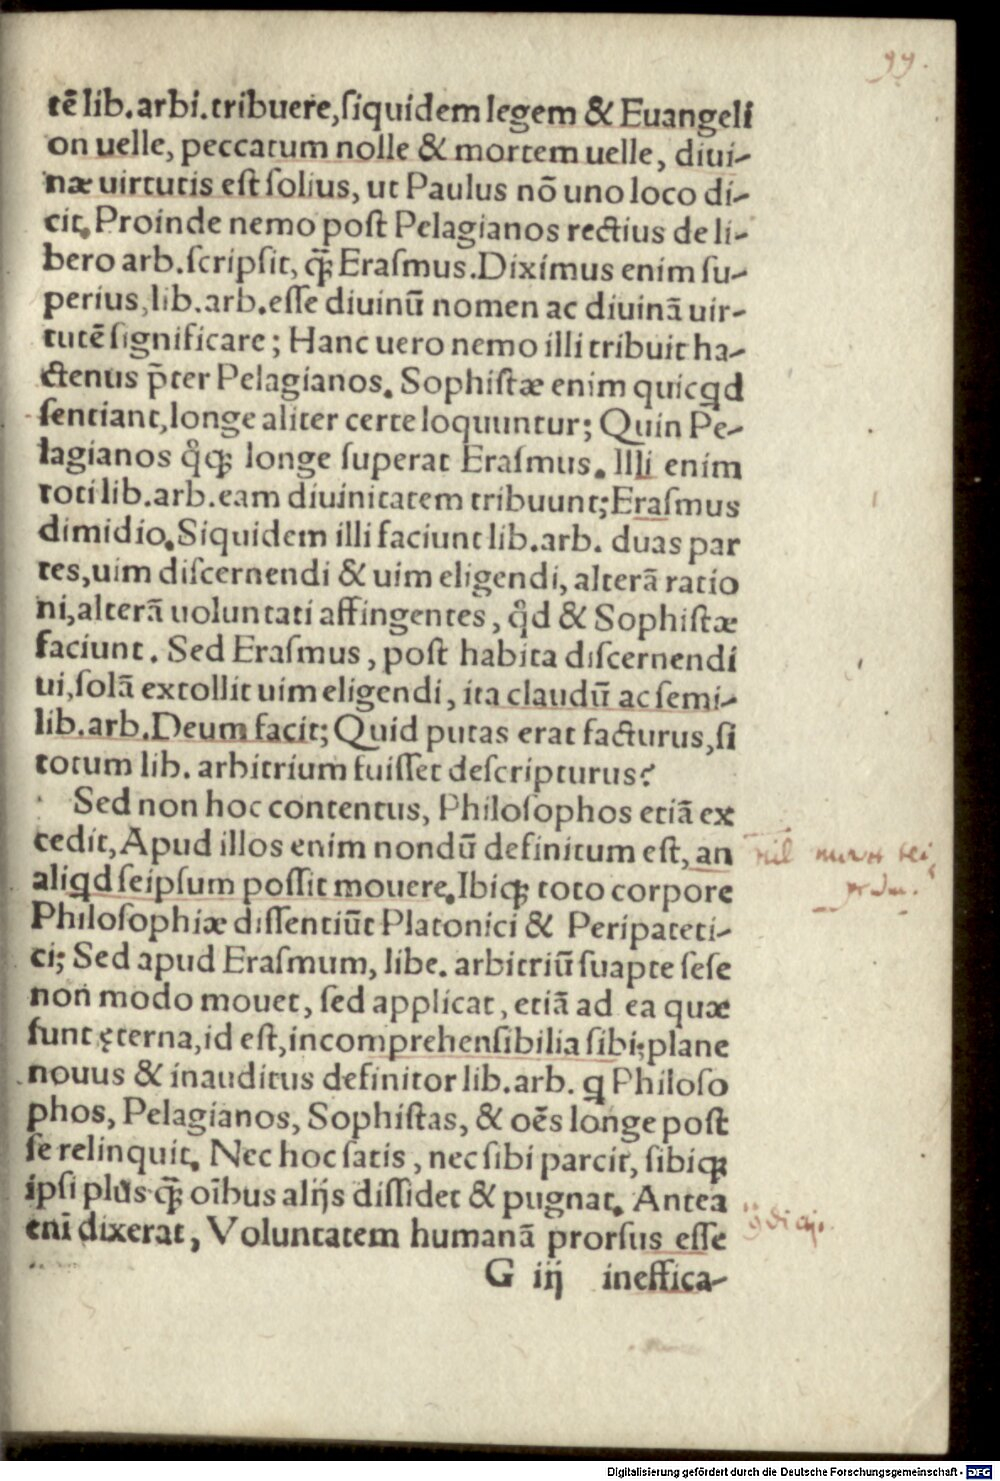 99.
tē lib.arbi.tribuere,ſiquidem legem & Euangeli
on uelle, peccatum nolle & mortem uelle, diui-
næ uirtutis eſt ſolius, ut Paulus nō uno loco di-
cit. Proinde nemo poſt Pelagianos rectius de li-
bero arb.ſcripſit, q̄ Eraſmus.Diximus enim ſu-
perius,lib.arb.eſſe diuinū nomen ac diuinā uir-
tutē ſignificare; Hanc uero nemo illi tribuit ha-
ctenus p̄ter Pelagianos. Sophiſtæ enim quicqd
ſentiant,longe aliter certe loquuntur; Quin Pe-
lagianos q̊qꝫ longe ſuperat Eraſmus. Illi enim
toti lib.arb.eam diuinitatem tribuunt;Eraſmus
dimidio.Siquidem illi faciunt lib.arb. duas par
tes,uim diſcernendi & uim eligendi, alterā ratio
ni,alterā uoluntati affingentes, q̊d & Sophiſtæ
faciunt. Sed Eraſmus, poſt habita diſcernendi
ui,ſolā extollit uim eligendi, ita claudū ac ſemi-
lib.arb.Deum facit; Quid putas erat facturus,ſi
totum lib. arbitrium fuiſſet deſcripturus?
Sed non hoc contentus, Philoſophos etiā ex
cedit, Apud illos enim nondū definitum eſt, an
aliqd ſeipſum poſſit mouere. Ibiqꝫ toto corpore
Philoſophiæ diſſentiūt Platonici & Peripateti-
ci; Sed apud Eraſmum, libe. arbitriū ſuapte ſeſe
non modo mouet, ſed applicat, etiā ad ea quæ
ſunt ęterna,id eſt,incomprehenſibilia ſibi;plane
nouus & inauditus definitor lib.arb. q Philoſo
phos, Pelagianos, Sophiſtas, & oēs longe poſt
ſe relinquit. Nec hoc ſatis, nec ſibi parcit, ſibiqꝫ
ipſi plus q̄ oībus alijs diſſidet & pugnat. Antea
enī dixerat, Voluntatem humanā prorſus eſſe
G iij ineffica-
Digitalisierung gefördert durch die Deutsche Forschungsgemeinschaft - DFG